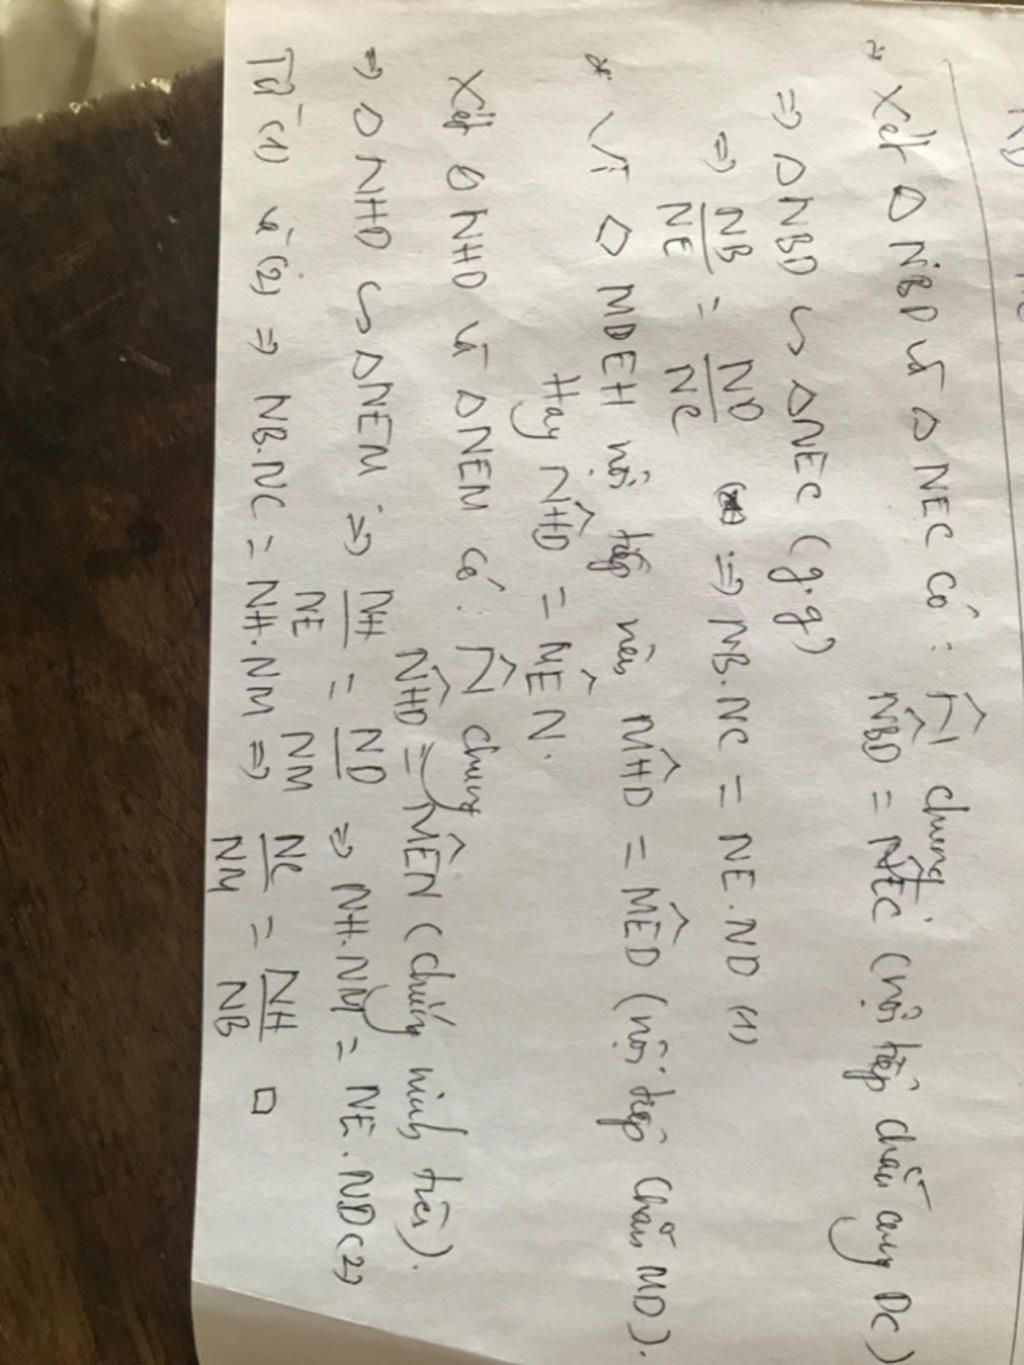 * Xét △ NBD và △ NEC có : N̂ chung
N̂BD = N̂EC (nội tiếp chắn cung DC)
⇒ △NBD ∽ △NEC (g.g)
⇒ NB/NE = ND/NC ⇒ NB.NC = NE.ND (1)
* Vì ◇ MDEH nội tiếp nên MĤD = MÊD (nội tiếp chắn MD).
Hay NĤD = MÊN.
Xét △ NHD và △NEM có : N̂ chung
NĤD = MÊN (chứng minh trên).
⇒ △ NHD ∽ △NEM ⇒ NH/NE = ND/NM ⇒ NH.NM = NE.ND (2)
Từ (1) và (2) ⇒ NB.NC = NH.NM ⇒ NC/NM = NH/NB □